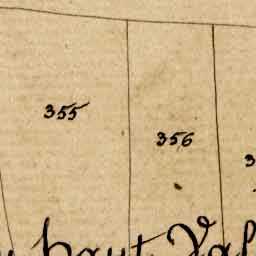 355
356
haut Val